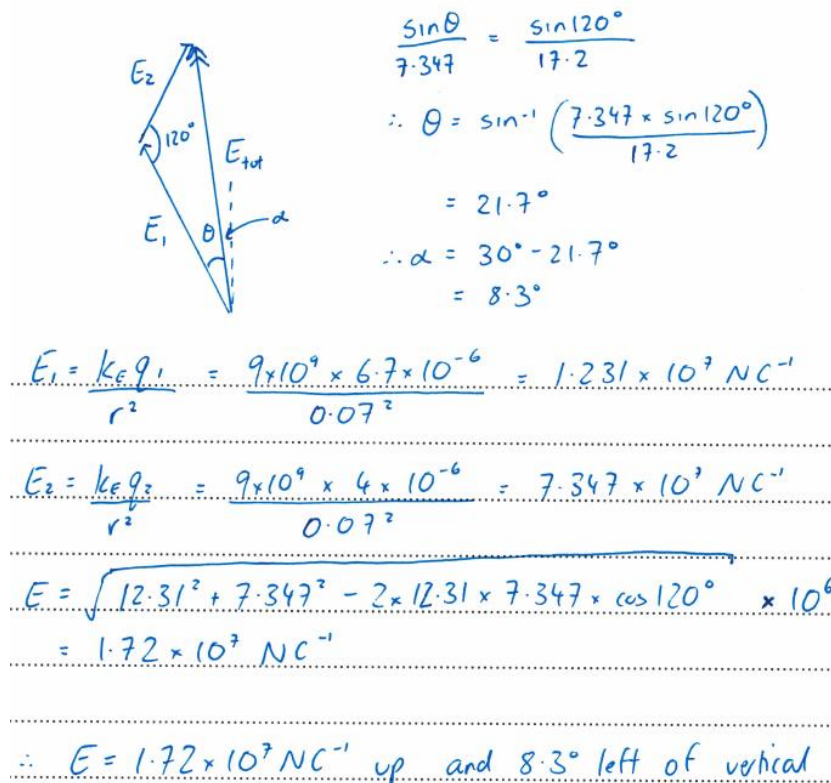 E₂
120°
E_tot
E₁
θ
α
sinθ / 7.347 = sin120° / 17.2
∴ θ = sin⁻¹ (7.347 × sin120° / 17.2)
= 21.7°
∴ α = 30° - 21.7°
= 8.3°
E₁ = k_E q₁ / r² = 9×10⁹ × 6.7×10⁻⁶ / 0.07² = 1.231 × 10⁷ NC⁻¹
E₂ = k_E q₂ / r² = 9×10⁹ × 4 × 10⁻⁶ / 0.07² = 7.347 × 10⁷ NC⁻¹
E = √(12.31² + 7.347² - 2×12.31 × 7.347 × cos120°) × 10⁶
= 1.72 × 10⁷ NC⁻¹
∴ E = 1.72 × 10⁷ NC⁻¹ up and 8.3° left of vertical